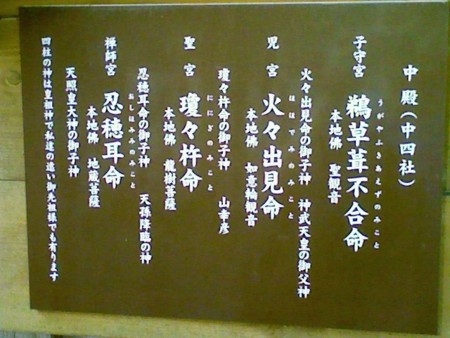 中殿(中四社)
子守宮 鵜草葺不合命
うがやふきあえずのみこと
本地佛 聖観音
火々出見命の御子神 神武天皇の御父神
児宮 火々出見命
ほほでみのみこと
本地佛 如意輪観音
瓊々杵命の御子神 山幸彦
聖宮 瓊々杵命
ににぎのみこと
本地佛 龍樹菩薩
忍穂耳命の御子神 天孫降臨の神
禅師宮 忍穂耳命
おしほみみのみこと
本地佛 地蔵菩薩
天照皇大神の御子神
四柱の神は皇祖神で私達の遠い御先祖様でも有ります